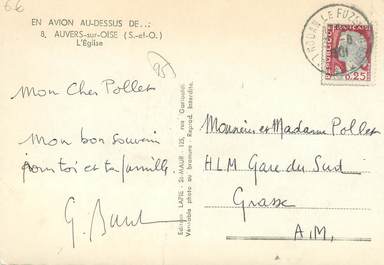 6€
EN AVION AU-DESSUS DE...
8, AUVERS-sur-OISE (S.-et-O.)
L'Église
95
Mon Cher Pollet
Mon bon souvenir
pour toi et ta famille
Edition LAPIE - St-MAUR - 125, rue Garibaldi
Véritable photo au bromure - Reprod. Interdite.
0,25
Monsieur et Madame Pollet
HLM Gare du Sud
Grasse
A.M.